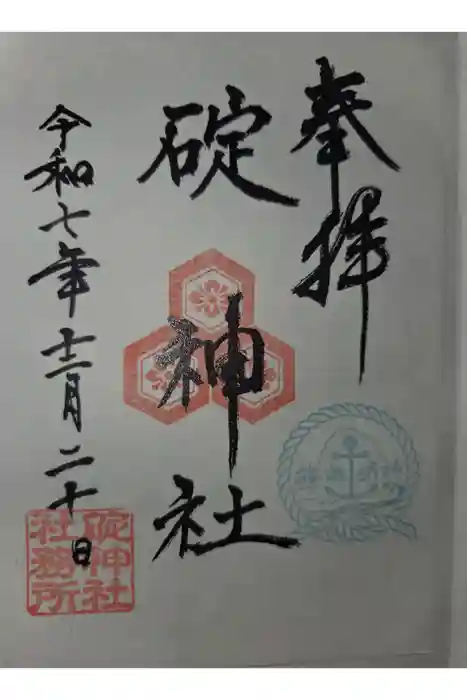 奉拝
碇神社
令和七年十二月二十日
碇神社
社務所